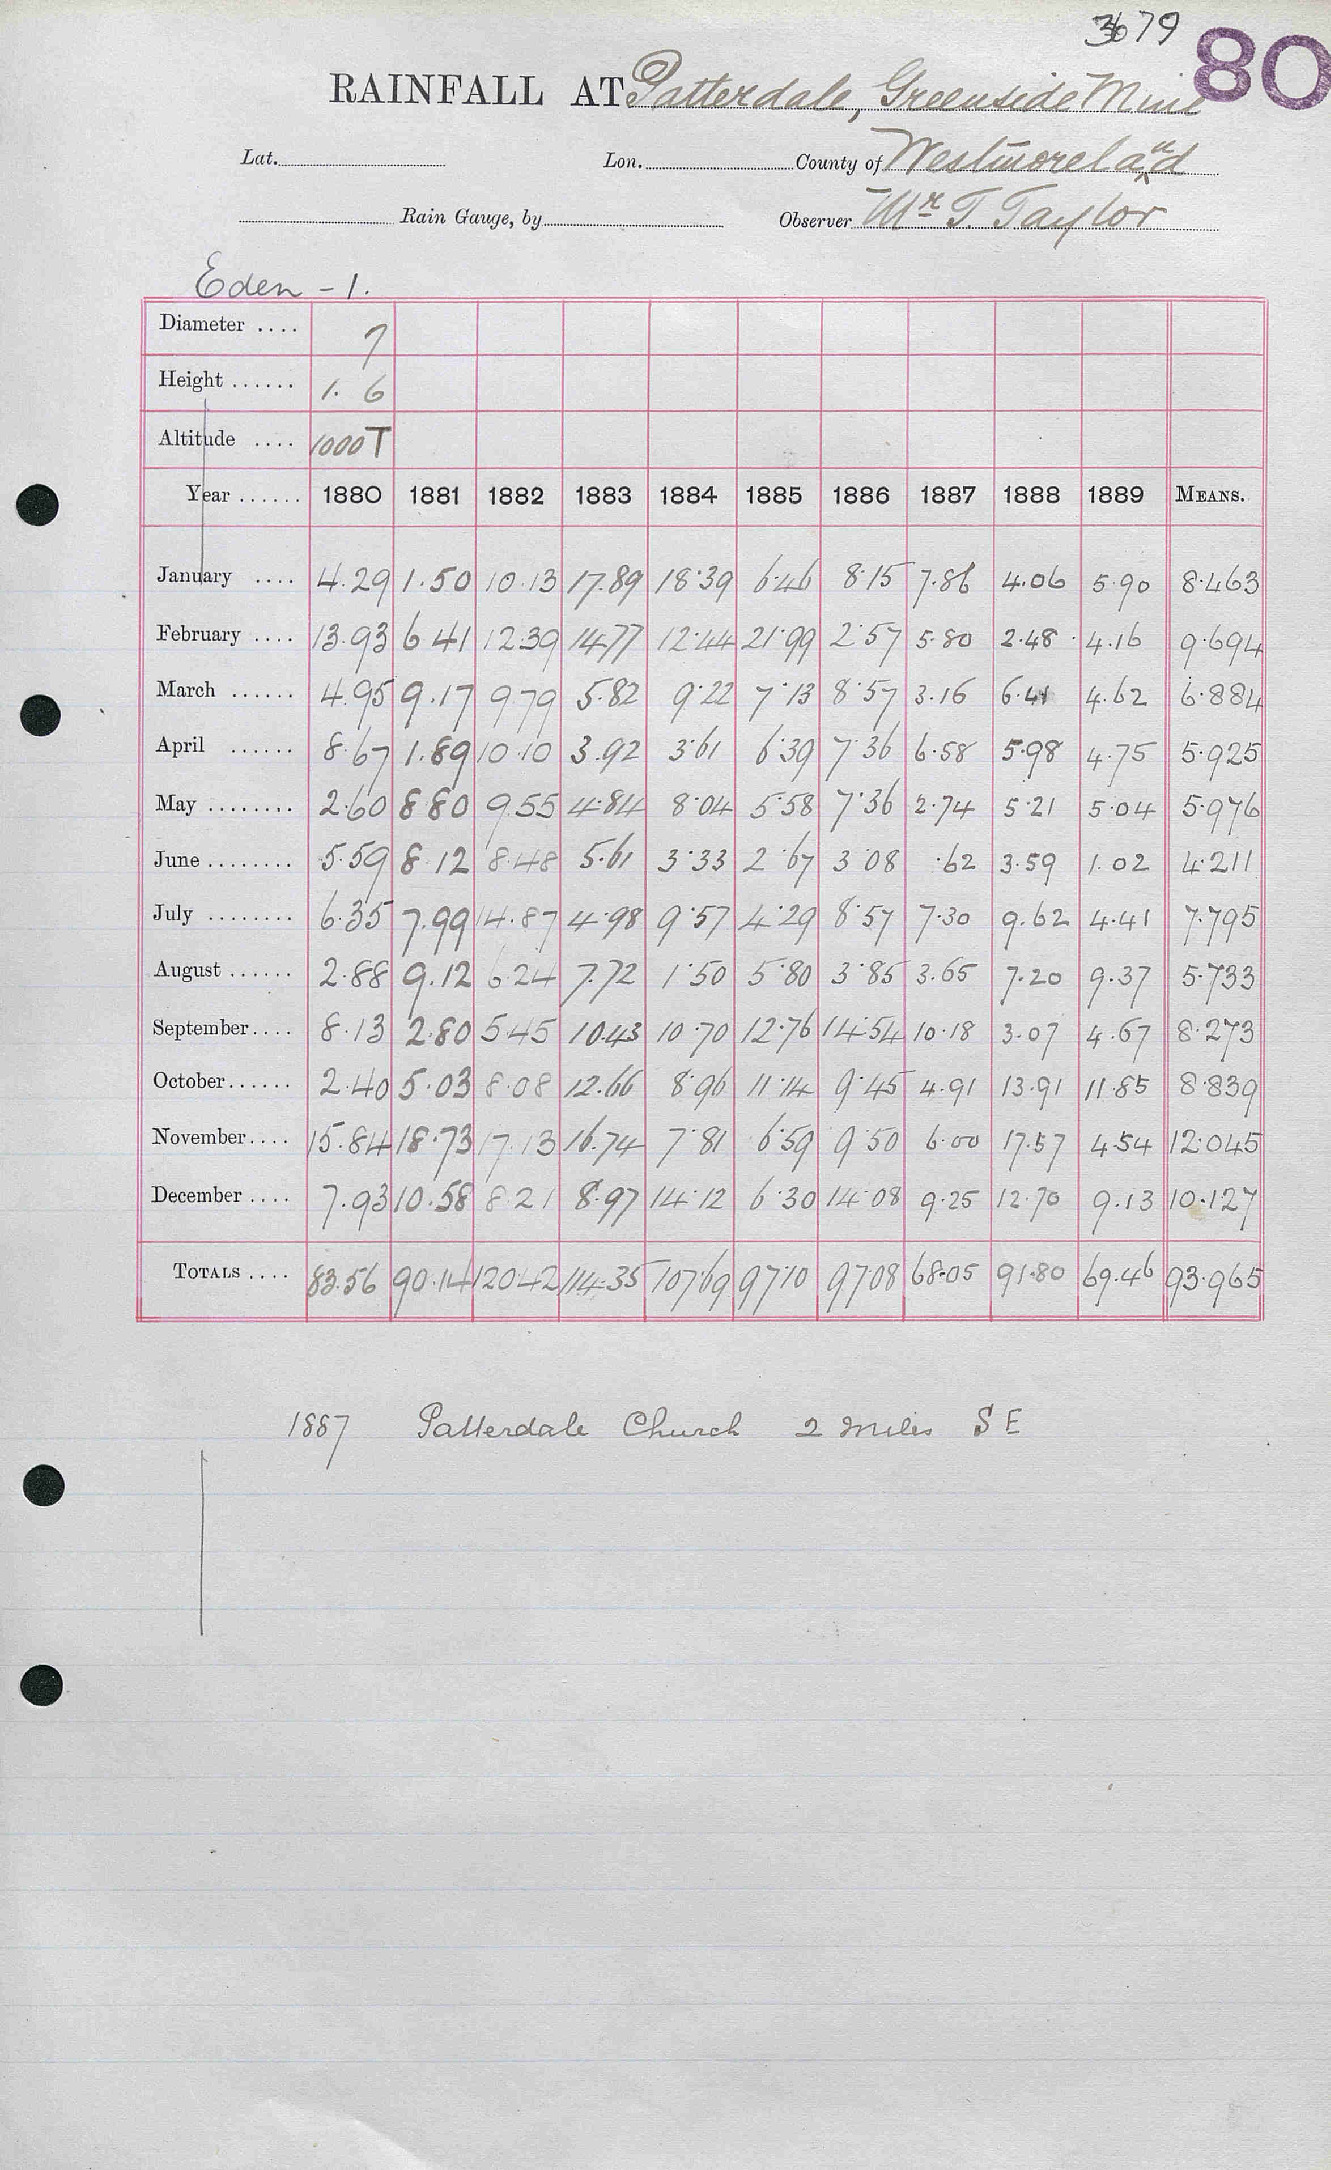 3679
80
RAINFALL AT Patterdale, Greenside Mine
Lat. Lon. County of Westmoreland
Rain Gauge, by Observer Mr T. Taylor
Eden - 1.
Diameter .... 7
Height ...... 1. 6
Altitude .... 1000 T
Year ...... 1880 1881 1882 1883 1884 1885 1886 1887 1888 1889 MEANS.
January .... 4.29 1.50 10.13 17.89 18.39 6.46 8.15 7.86 4.06 5.90 8.463
February .... 13.93 6.41 12.39 14.77 12.44 21.99 2.57 5.80 2.48 4.16 9.694
March ...... 4.95 9.17 9.79 5.82 9.22 7.13 8.57 3.16 6.41 4.62 6.884
April ...... 8.67 1.89 10.10 3.92 3.61 6.39 7.36 6.58 5.98 4.75 5.925
May ........ 2.60 8.80 9.55 4.84 8.04 5.58 7.36 2.74 5.21 5.04 5.976
June ........ 5.59 8.12 8.48 5.61 3.33 2.67 3.08 .62 3.59 1.02 4.211
July ........ 6.35 7.99 14.87 4.98 9.57 4.29 8.57 7.30 9.62 4.41 7.795
August ...... 2.88 9.12 6.24 7.72 1.50 5.80 3.85 3.65 7.20 9.37 5.733
September .... 8.13 2.80 5.45 10.43 10.70 12.76 14.54 10.18 3.07 4.67 8.273
October ...... 2.40 5.03 8.08 12.66 8.96 11.14 9.45 4.91 13.91 11.85 8.839
November .... 15.84 18.73 17.13 16.74 7.81 6.59 9.50 6.00 17.57 4.54 12.045
December .... 7.93 10.58 8.21 8.97 14.12 6.30 14.08 9.25 12.70 9.13 10.127
TOTALS .... 83.56 90.14 120.42 114.35 107.69 97.10 97.08 68.05 91.80 69.46 93.965
1887 Patterdale Church 2 miles S E